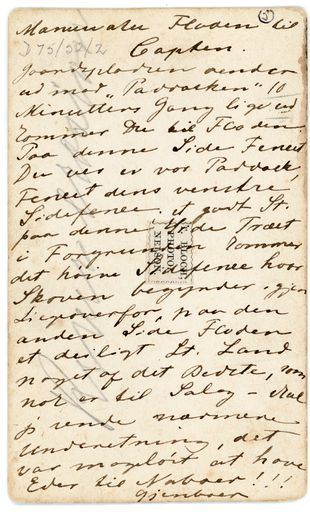 Manuwatu Floden til
D 75/52/2
Capten.
Jordpladsen vender
ud mod "Paddocken" 10
Minutters Gang lige ud
kommer Du til Floden.
Paa denne Side Fencet
Du ser er vor Paddock,
Fencet dens venstre
Sidefence, et godt St.
paa denne Side Træet
i Forgrunden kommer
det höire Sidefence hvor
Skoven begynder. igjen
Ligeoverfor, paa den
anden Side Floden
et deiligt St. Land
noget af det Bedste, som
nok er til Salg – skal
nærmere
Underretning, det
var mageløst at have
Eder til Naboer !!!
Gjenboer
BLOCH
PHOTO
NELSON